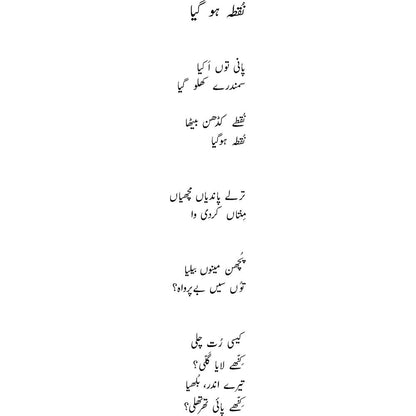 نُقطہ ہو گیا
پانی توں اَکیا
سمندرے کھلو گیا
نُقطے کڈھن بیٹھا
نُقطہ ہوگیا
ترلے پاندیاں مچھیاں
مِنتاں کردی وا
پُچھن مینوں بیلیا
توُں سیں بےپرواہ؟
کیسی رُت چلی
کِنھے لایا گُلّی؟
تیرے اندر، بُلھیا
کِنھے پائی تھرتھلی؟